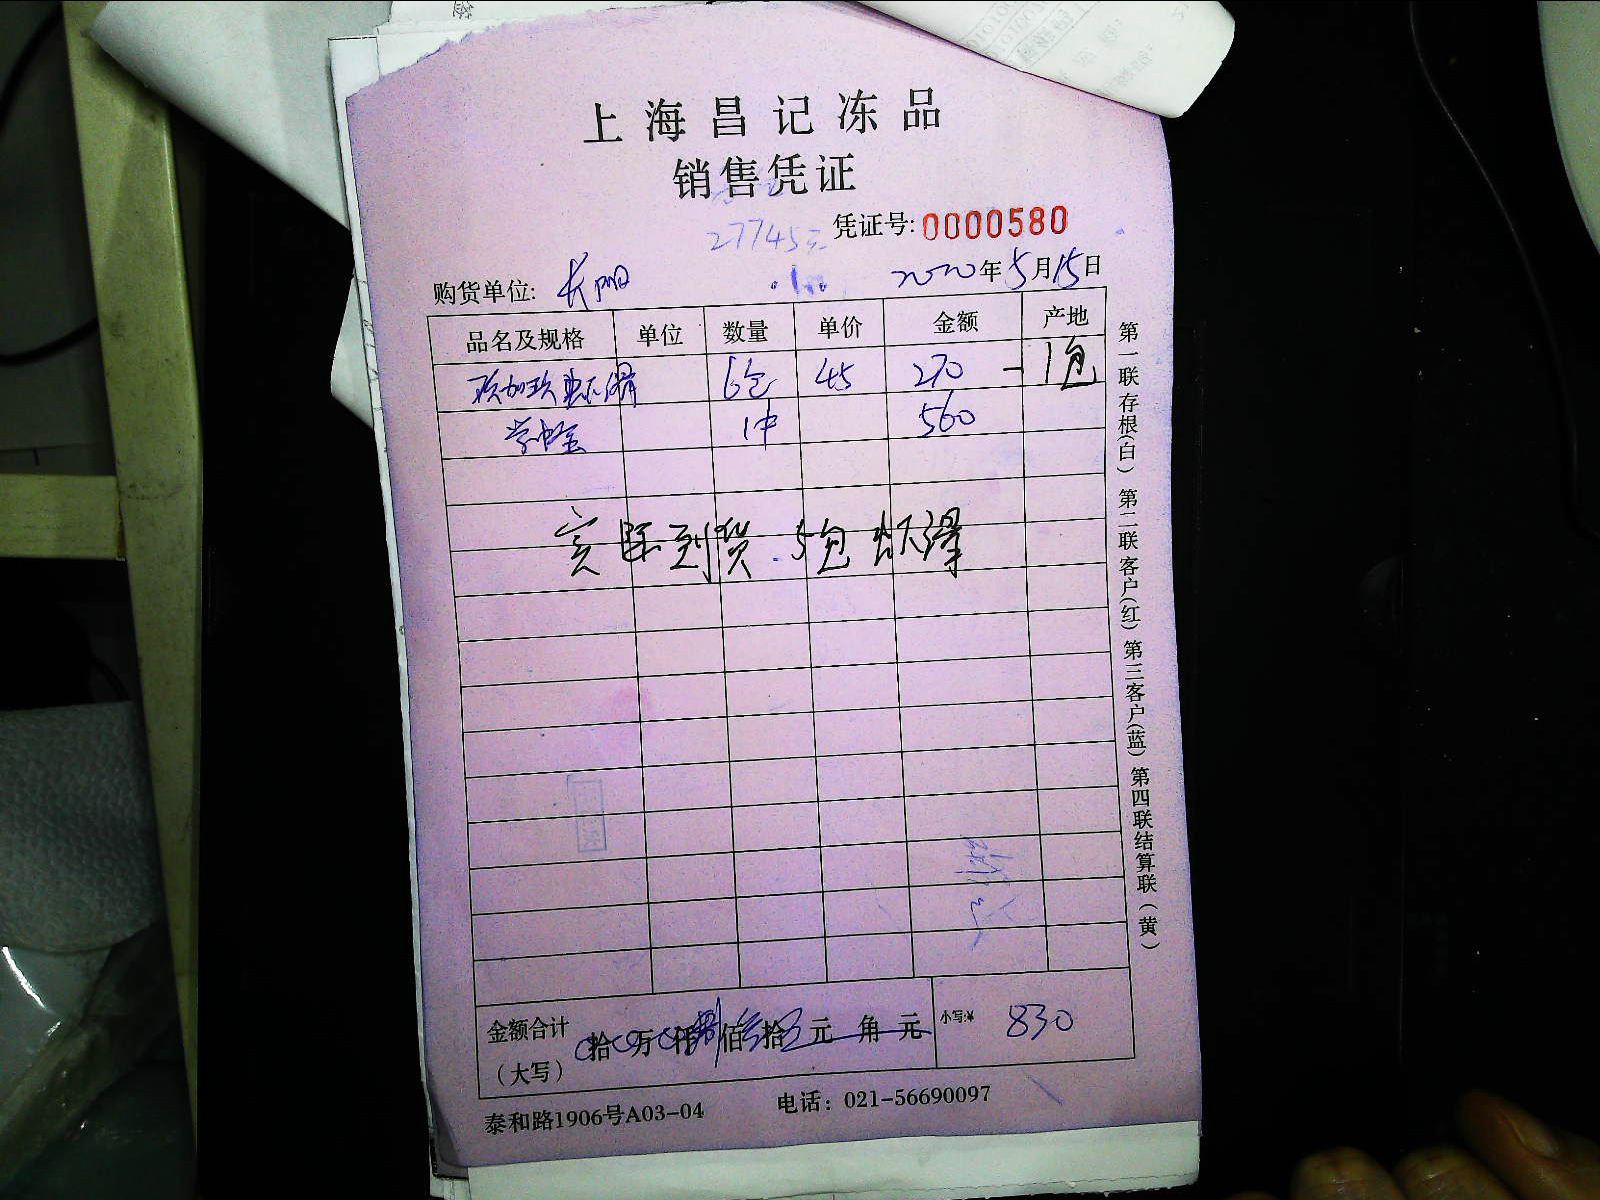 上海昌记冻品
销售凭证
27745元
凭证号: 0000580
购货单位: 长阳 2020年5月15日
品名及规格 单位 数量 单价 金额 产地
6包 45 270 - 1包
1件 560
实际到货 5包 虾滑
金额合计（大写） 拾 万 仟 捌 佰 叁 拾 元 角 元 小写:¥ 830
泰和路1906号A03-04 电话: 021-56690097
第一联存根(白) 第二联客户(红) 第三客户(蓝) 第四联结算联(黄)